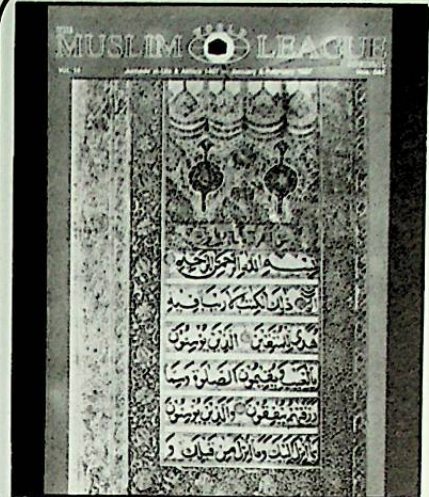 THE
WORLD
MUSLIM LEAGUE
JOURNAL
Vol. 14 Jumada al-Ula & Akhira 1407 — January & February 1987 Nos.
بسم الله الرحمن الرحيم
الم ذلك الكتب لا ريب فيه
هدى للمتقين الذين يؤمنون
بالغيب ويقيمون الصلوة ومما
رزقنهم ينفقون والذين يؤمنون
بما انزل اليك وما انزل من قبلك و